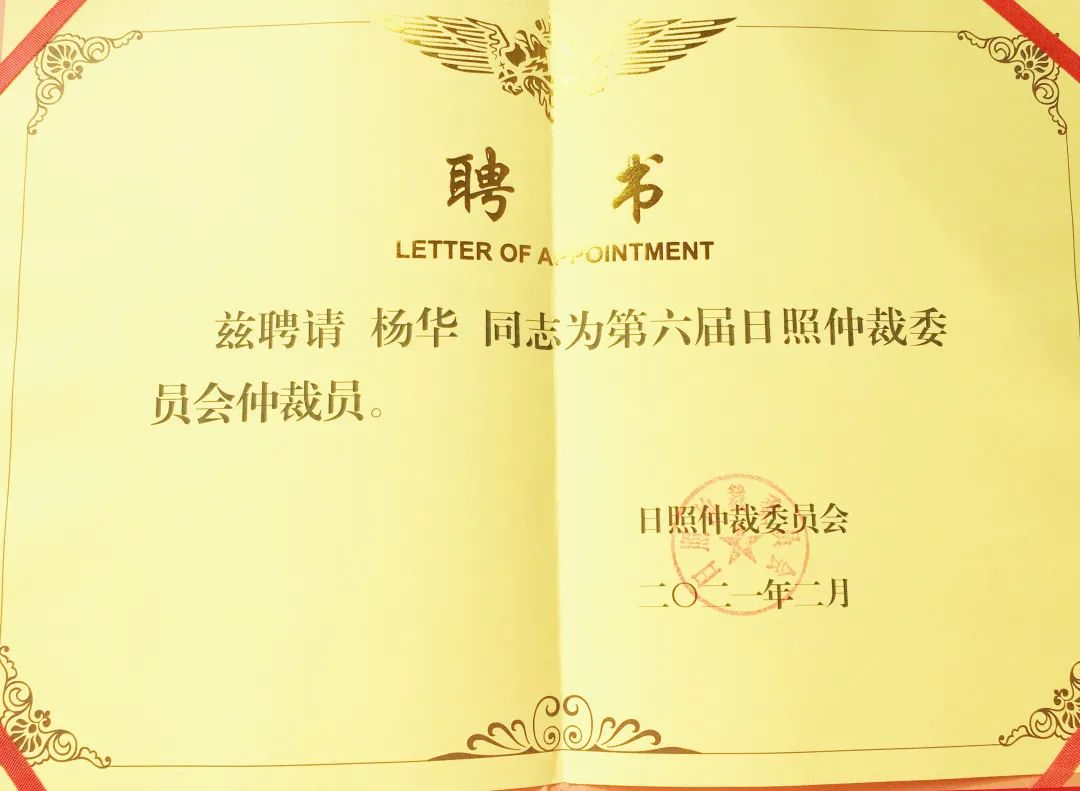 聘 书
LETTER OF APPOINTMENT
兹聘请 杨华 同志为第六届日照仲裁委
员会仲裁员。
日照仲裁委员会
二〇二一年二月
日照仲裁委员会